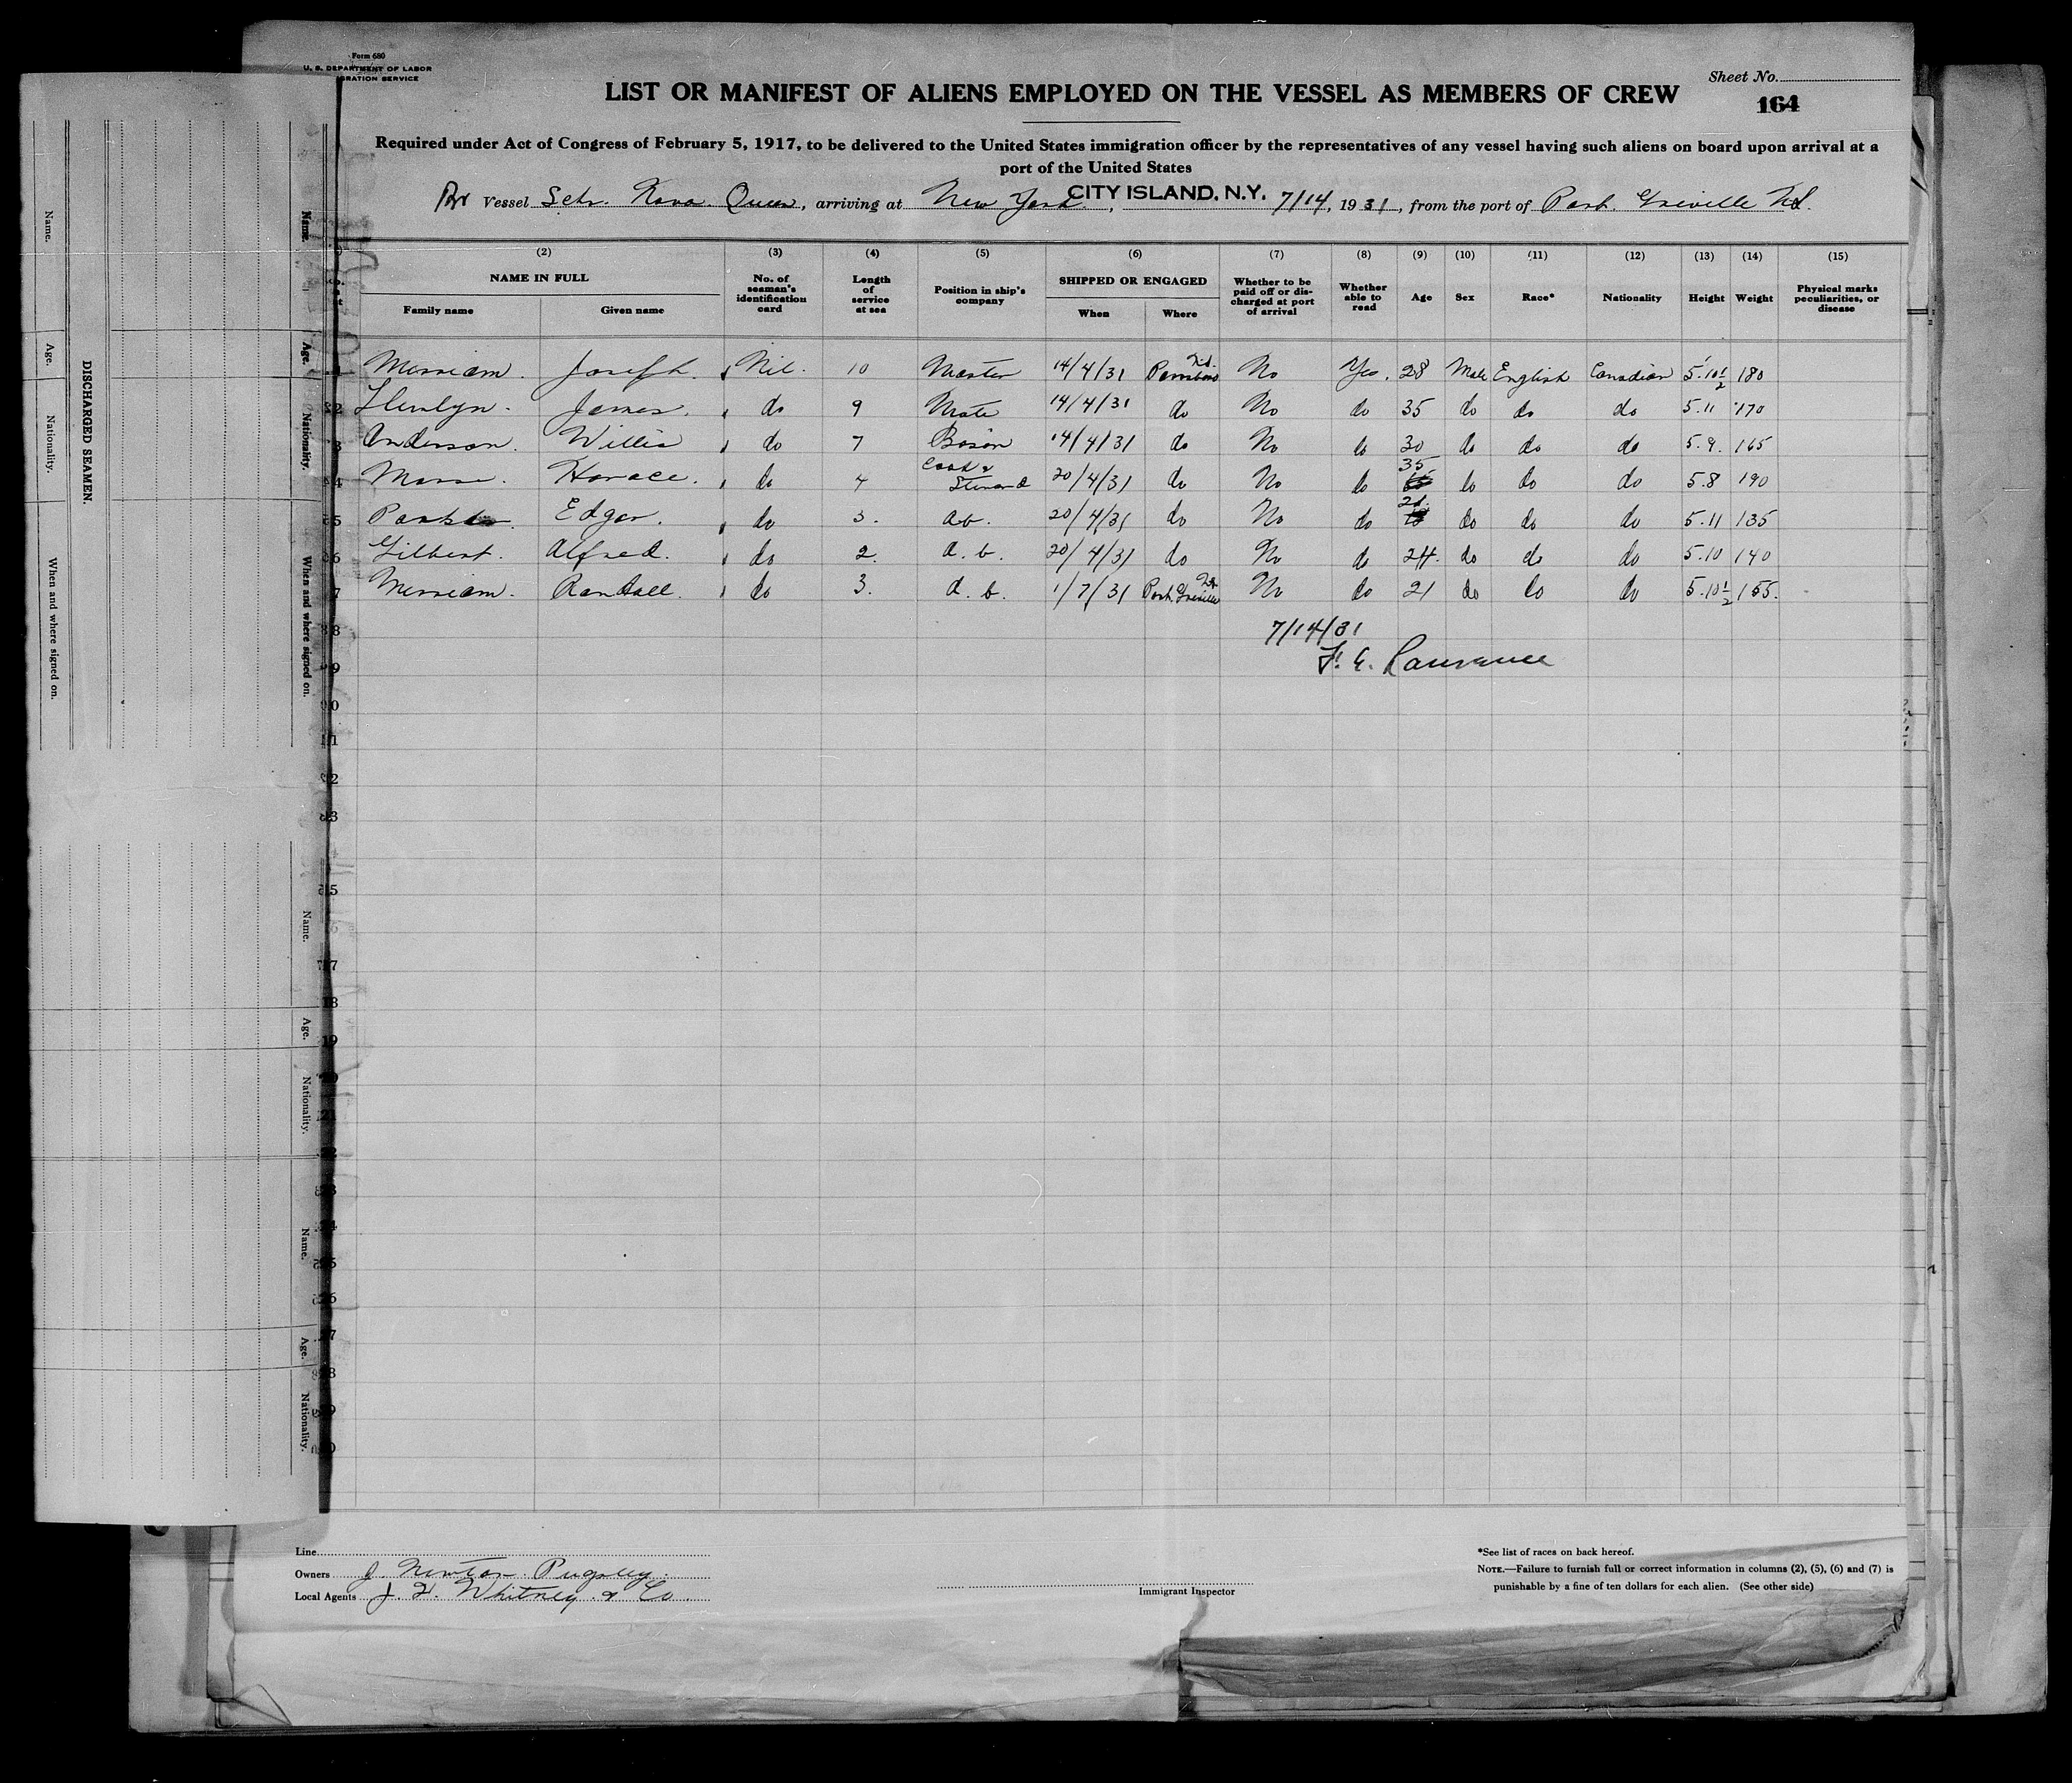 Form 680
U. S. DEPARTMENT OF LABOR
GRATION SERVICE
Sheet No.
164
LIST OR MANIFEST OF ALIENS EMPLOYED ON THE VESSEL AS MEMBERS OF CREW
Required under Act of Congress of February 5, 1917, to be delivered to the United States immigration officer by the representatives of any vessel having such aliens on board upon arrival at a
port of the United States
Br Vessel Schr. Nova Queen, arriving at New York, CITY ISLAND, N.Y. 7/14, 1931, from the port of Port Greville N.S.
(2) (3) (4) (5) (6) (7) (8) (9) (10) (11) (12) (13) (14) (15)
NAME IN FULL
Family name Given name
No. of seaman's identification card
Length of service at sea
Position in ship's company
SHIPPED OR ENGAGED
When Where
Whether to be paid off or discharged at port of arrival
Whether able to read
Age Sex Race* Nationality Height Weight
Physical marks peculiarities, or disease
1 Merriam. Joseph. Nil. 10 Master 14/4/31 Parrsboro N.S. No Yes. 28 Male English Canadian 5'.10½ 180
2 Llewlyn. James. do 9 Mate 14/4/31 do No do 35 do do do 5.11 170
3 Anderson. Willis do 7 Bosòn 14/4/31 do No do 30 do do do 5.9. 165
4 Horace. do 4 Cook & Steward 20/4/31 do No do 35 do do do 5.8 190
5 Edgar. do 3. a.b. 20/4/31 do No do do do do 5.11 135
6 Gilbert. Alfred. do 2. a. b. 20/4/31 do No do 24. do do do 5.10 140
7 Merriam. Randall. do 3. a. b. 1/7/31 Port Greville N.S. No do 21 do do do 5.10½ 155.
7/14/31
F. E. Lawrence
8
9
10
11
12
13
15
17
18
19
20
21
22
23
24
25
26
27
28
29
30
Line
Owners J. Newton Pugsley.
Local Agents J. F. Whitney & Co.
Immigrant Inspector
*See list of races on back hereof.
NOTE.—Failure to furnish full or correct information in columns (2), (5), (6) and (7) is
punishable by a fine of ten dollars for each alien. (See other side)
DISCHARGED SEAMEN.
Name. Age. Nationality. When and where signed on.
Name. Age. Nationality. When and where signed on.
Name. Age. Nationality.
Name. Age. Nationality.